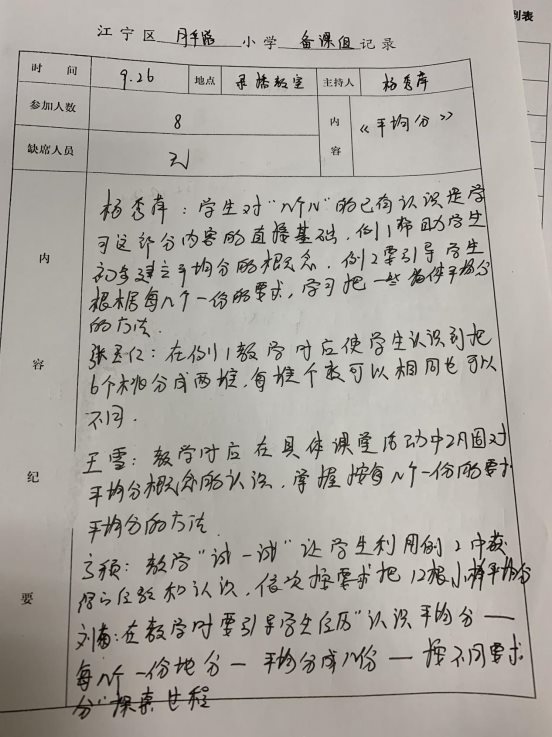 到表
江宁区 小学 备课组 记录
时间 9.26 地点 录播教室 主持人 杨秀萍
参加人数 8 内容 《平均分》
缺席人员 无
内容纪要
杨秀萍：学生对“几个几”的已有认识是学
习这部分内容的直接基础，例1帮助学生
初步建立平均分的概念，例2要引导学生
根据每几个一份的要求，学习把一些物体平均分
的方法．
张 仁：在例1教学时应使学生认识到把
6个桃分成两堆，每堆个数可以相同也可以
不同．
王雪：教学时应在具体课堂活动中巩固对
平均分概念的认识，掌握按每几个一份的要求
平均分的方法．
教学“试一试”让学生利用例2中获
得的经验和认识，依次按要求把12根小棒平均分
刘 ：在教学时要引导学生经历“认识平均分—
每几个一份地分—平均分成几份—按不同要求
分”探索过程